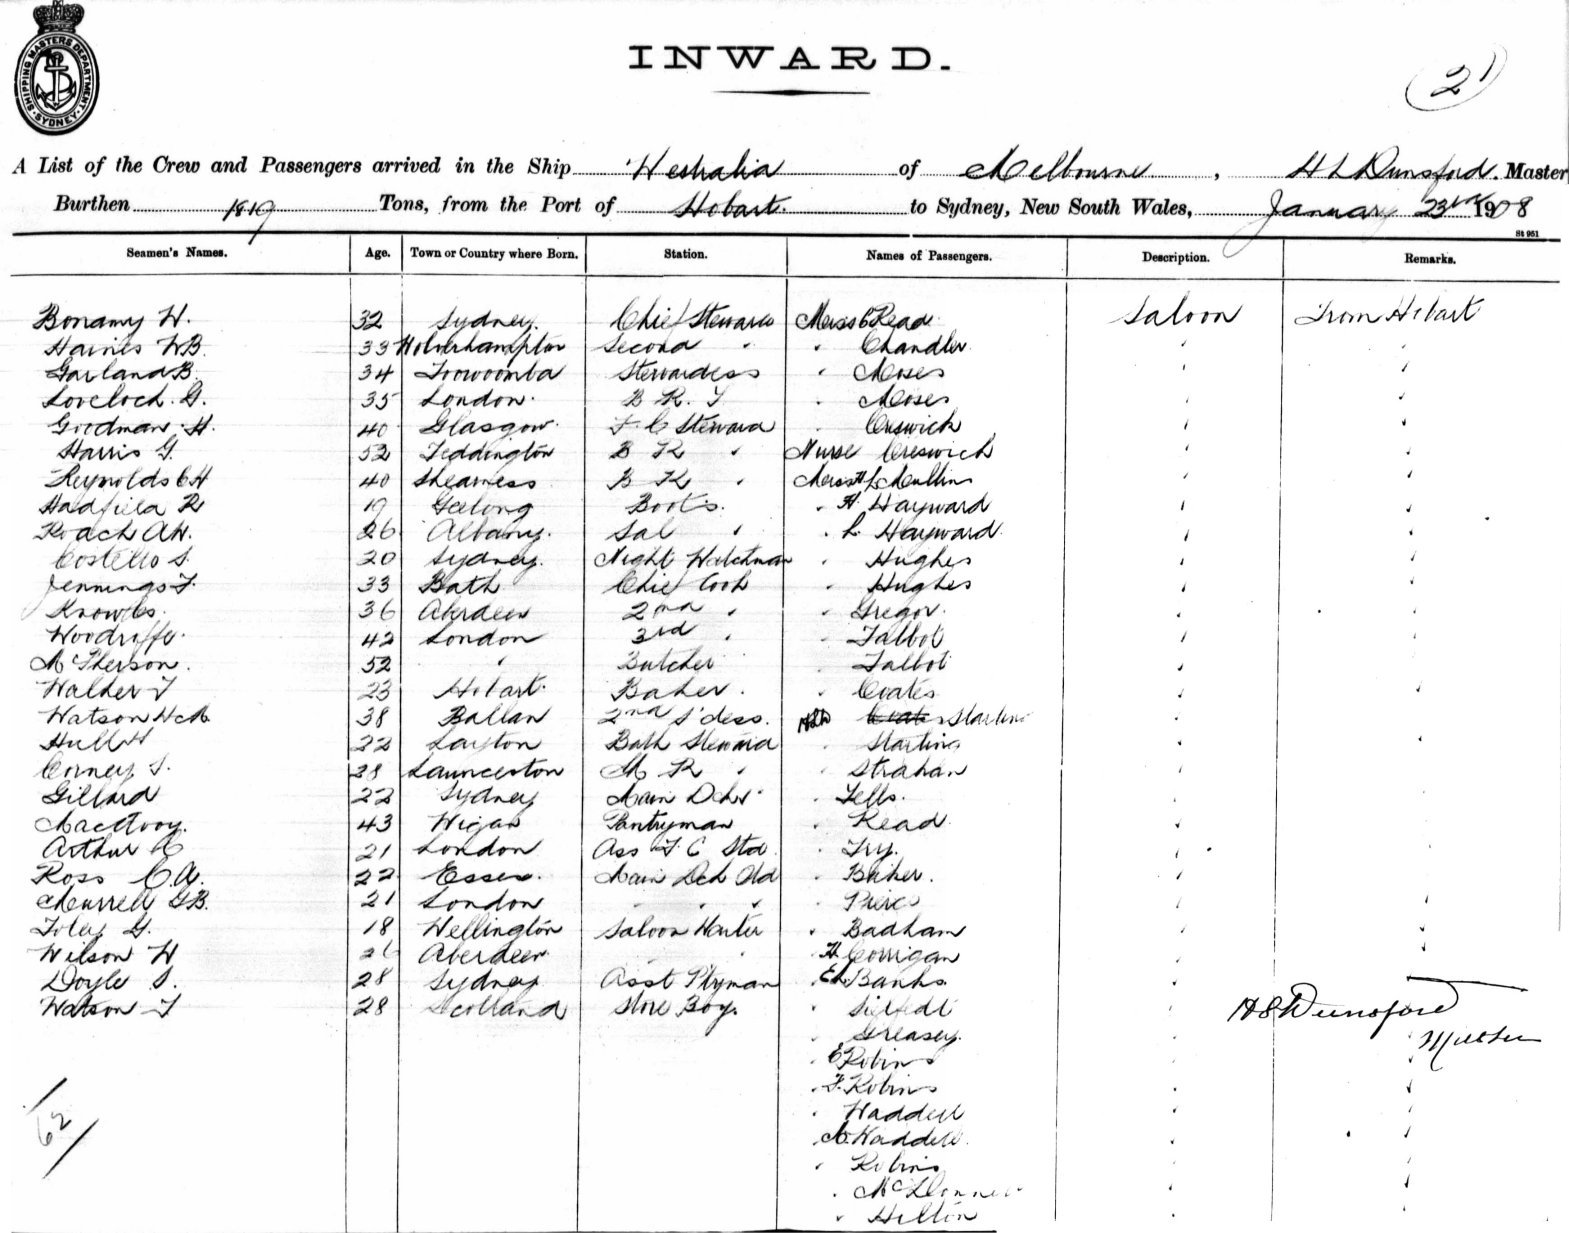 SHIPPING MASTERS DEPARTMENT SYDNEY
INWARD.
2
A List of the Crew and Passengers arrived in the Ship Westralia of Melbourne, H L Dunsford. Master
Burthen 1819 Tons, from the Port of Hobart. to Sydney, New South Wales, January 23rd 1908
St 951
Seamen's Names. Age. Town or Country where Born. Station. Names of Passengers. Description. Remarks.
Bonamy W. 32 Sydney. Chief Steward Miss C Read Saloon From Hobart
Haines WB. 33 Wolverhampton Second " " Chandler " "
Garland B. 34 Toowoomba Stewardess " Moses " "
Lovelock. G. 35 London. B. R. " Moses " "
Goodman. H. 40 Glasgow F. C Steward " "
Harris G. 52 Teddington B R " Nurse Creswick " "
Reynolds C H 40 Sheerness B R " Miss McMullin " "
Hadfield R 19 Geelong Boots. " H. Hayward " "
Roach AW. 26 Albany. Sal " " L. Hayward " "
Costello S. 20 Sydney. Night Watchman " Hughes " "
Jennings F. 33 Bath Chief Cook " Hughes " "
Knowles. 36 Aberdeen 2nd " " Gregor. " "
Woodroffe. 42 London 3rd " " Talbot " "
McPherson. 52 " Butcher " Talbot "
Walker T 23 Hobart. Baker. " Coates " "
Watson 38 Ballan 2nd S'dess. HLD Starling "
Hull H 22 Layton Bath Steward " Starling " "
Corney S. 28 Launceston M R " " Strahan "
Gillard 22 Sydney Main Dck " Tells. "
MacAvoy. 43 Wigan Pantryman " Read "
Arthur C 21 London Ass F. C Std. " Try. "
Ross C. A. 22 Essex. Main Dck Std " Baker. "
Murrell GB. 21 London " " " " Pierce " "
Foley G. 18 Wellington Saloon Waiter " Badham " "
Wilson W 26 Aberdeen " " H. Corrigan " "
Doyle S. 28 Sydney Asst P'tryman " Banks "
Watson T 28 Scotland Store Boy. " " HL Dunsford
" Greasey. " Master
" E Robins "
" F. Robins " "
" Waddell " "
" A. Waddell. " "
" Robins " "
" McDonnell " "
" Hilton " "
62